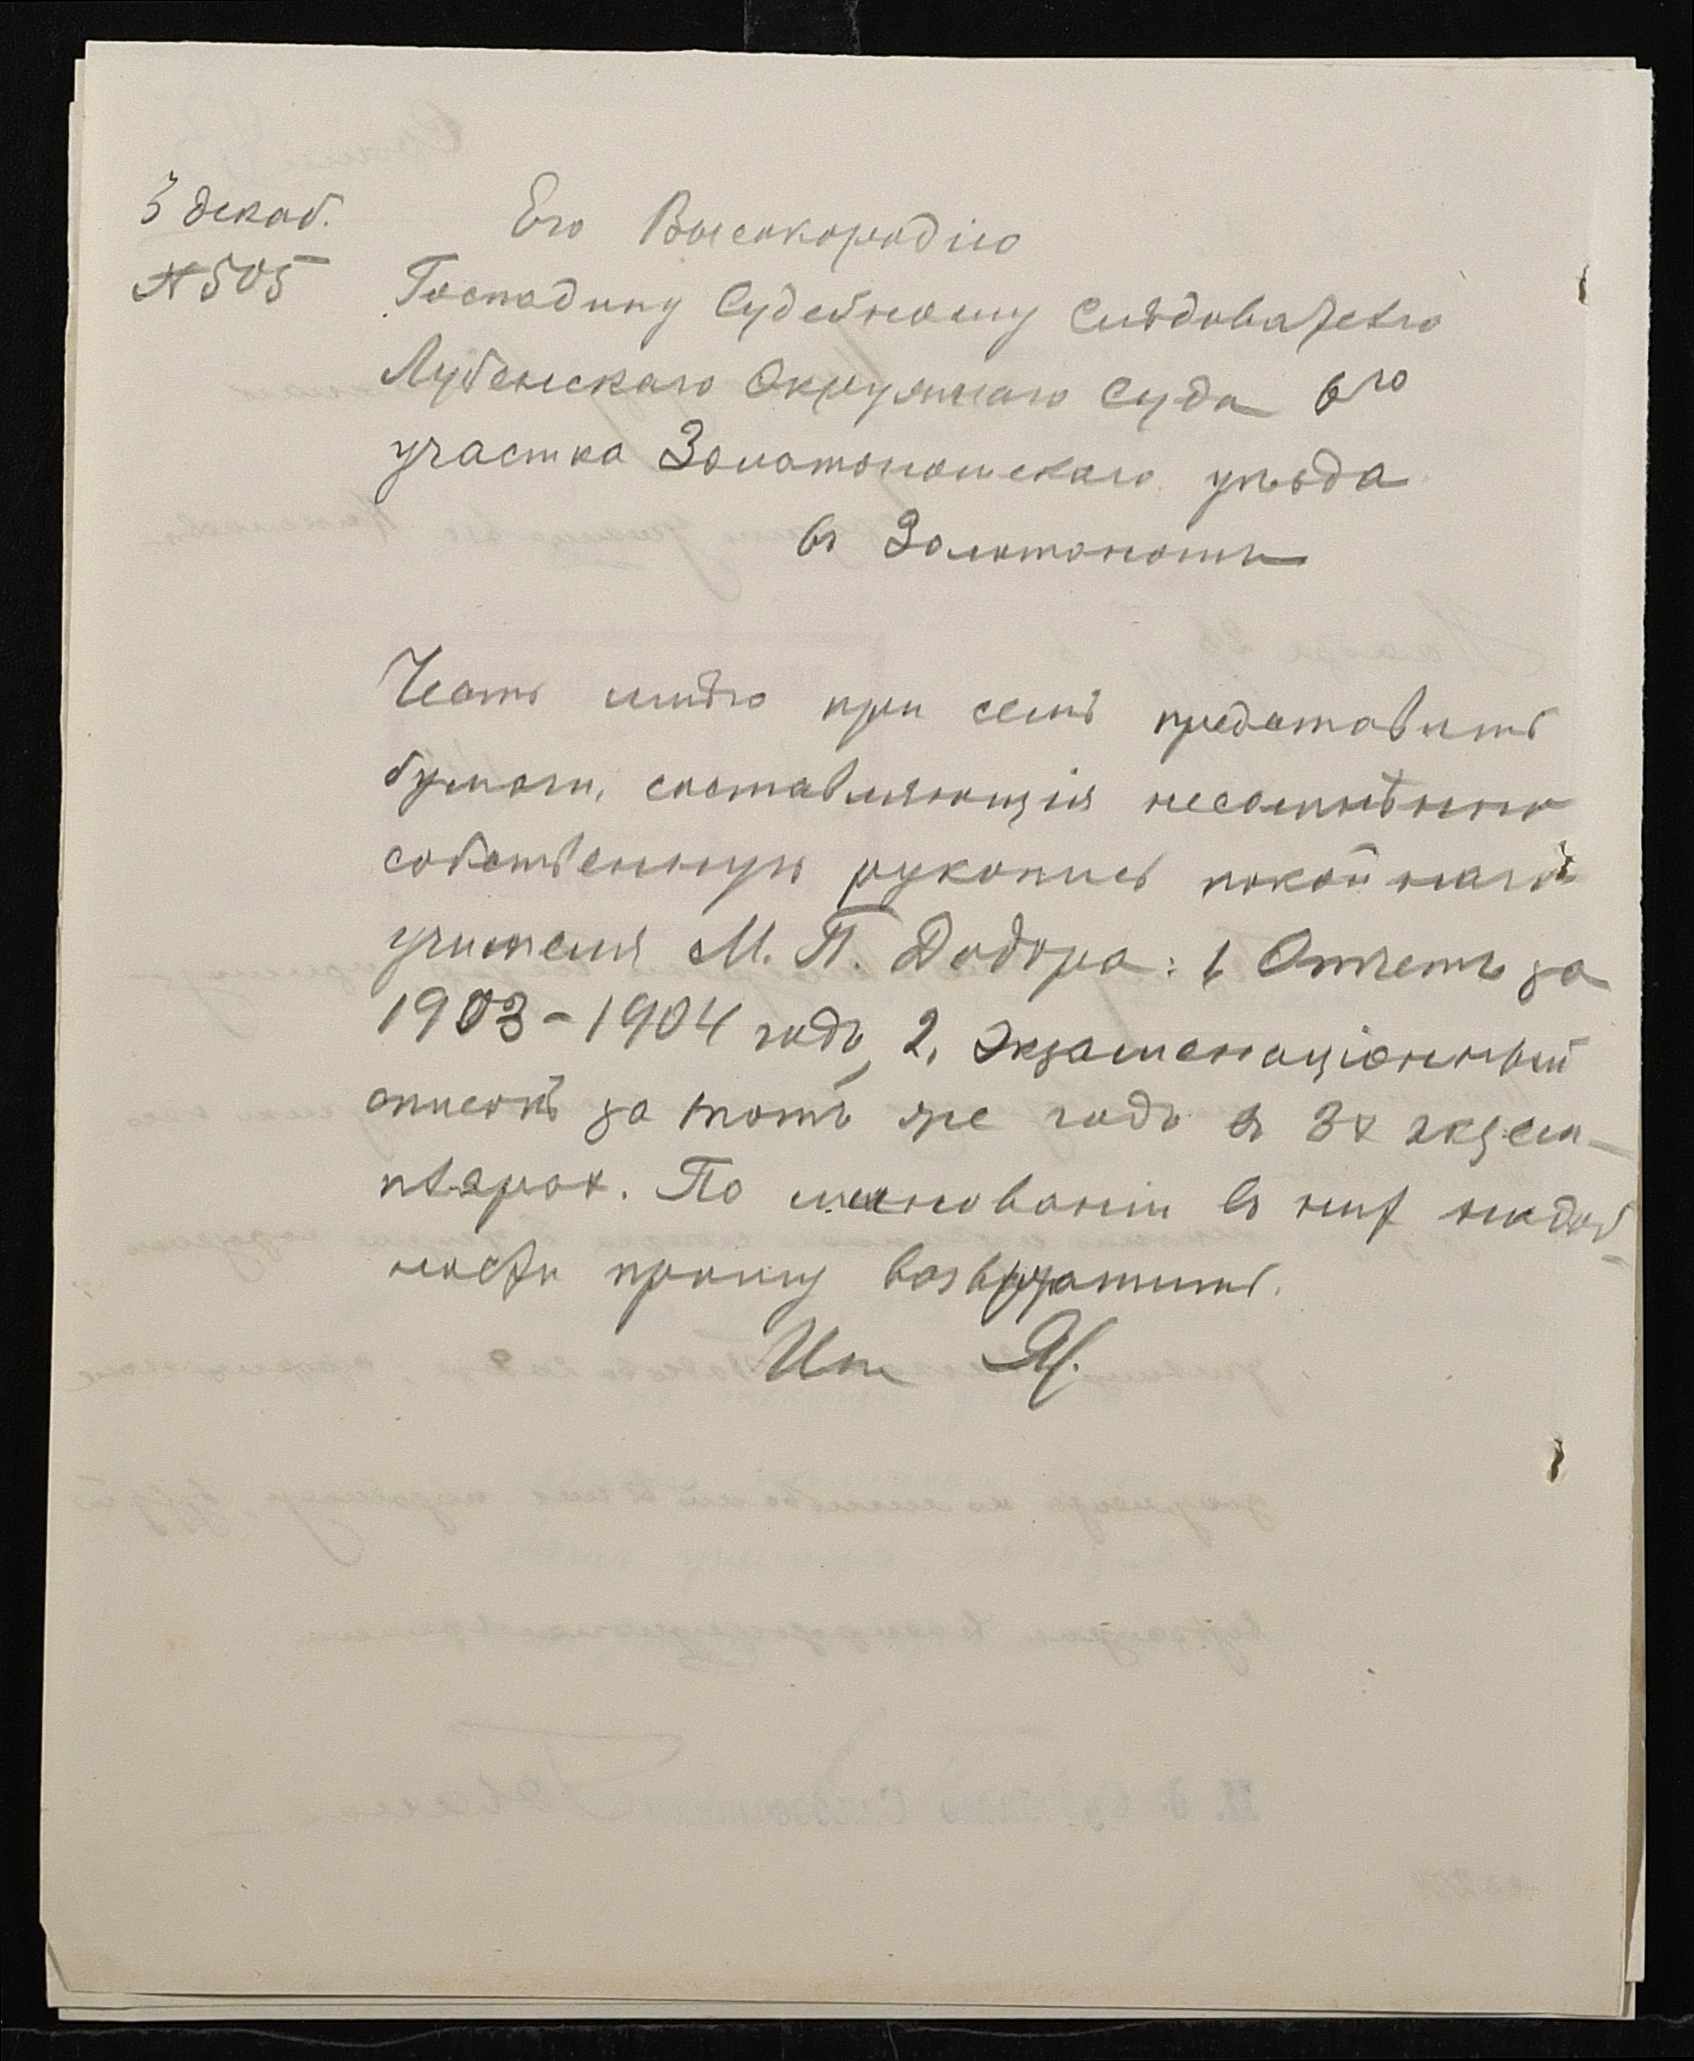 3 декаб.
№ 505
Его Высокородію
Господину Судебному Слѣдователю
Лубенскаго Окружнаго Суда 6го
участка Золотоношскаго уѣзда
въ Золотоношѣ
Честь имѣю при семъ представить
бумаги, составляющія несомнѣнно
собственную рукопись покойнаго
учителя М. П. Додора: 1, Отчетъ за
1903-1904 годъ, 2, Экзаменаціонный
списокъ за тотъ же годъ въ 3х экзем-
плярах. По минованіи въ них надоб-
ности прошу возвратить.
Ин